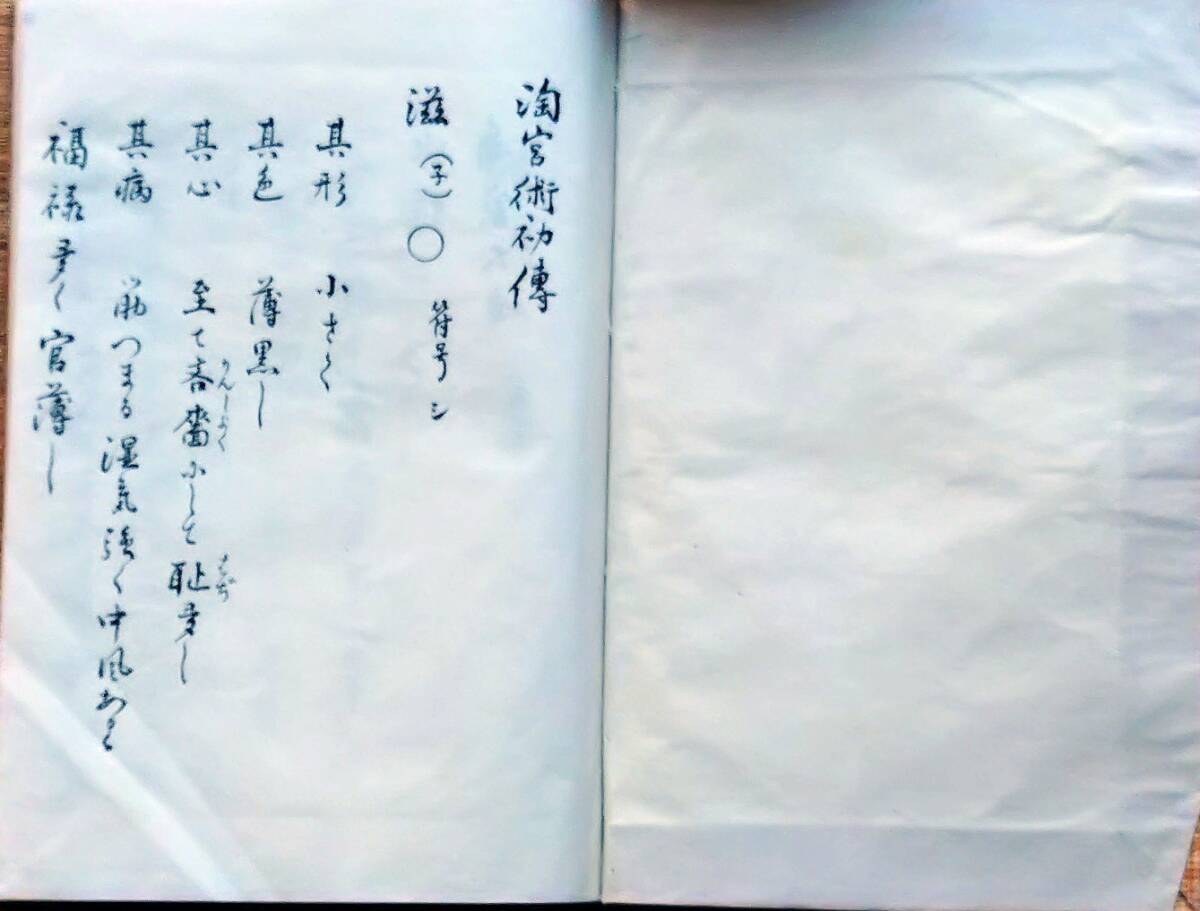 淘宮術初傳
滋（子）〇　符号　シ
其形　小さく
其色　薄黒し
其心　至て吝嗇にして恥多し
りんしよく　はぢ
其病　筋つまる湿氣強く中風あり
福禄多く官薄し